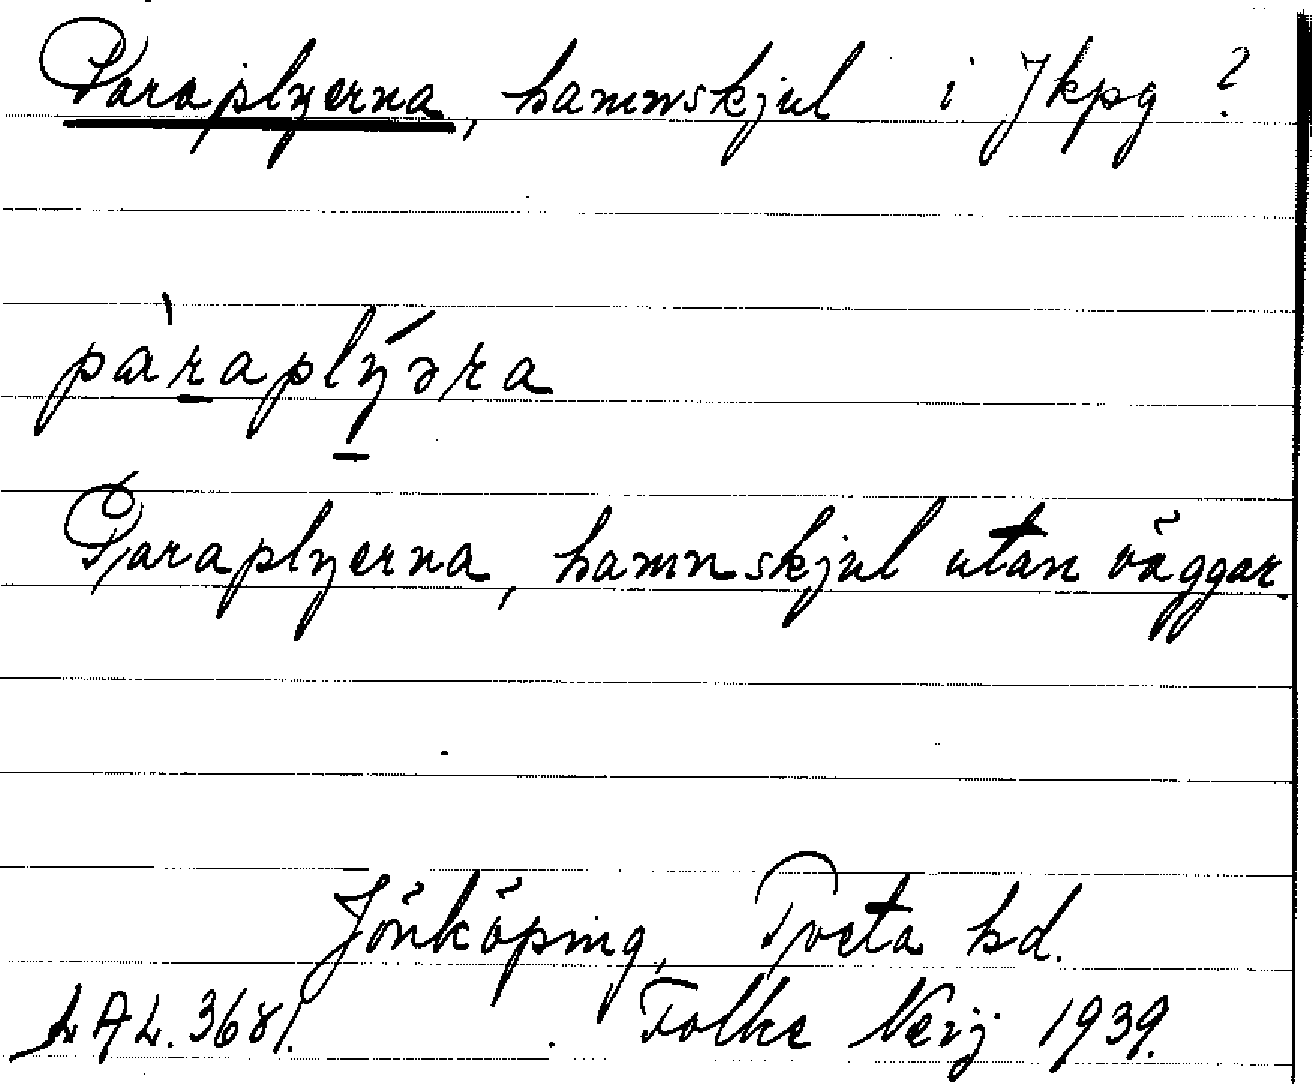 Paraplyerna, hamnskjul i Jkpg ?
pàraplýəra
Paraplyerna, hamnskjul utan väggar.
Jönköping, Tveta hd.
LAL. 3681. Folke Neij 1939.